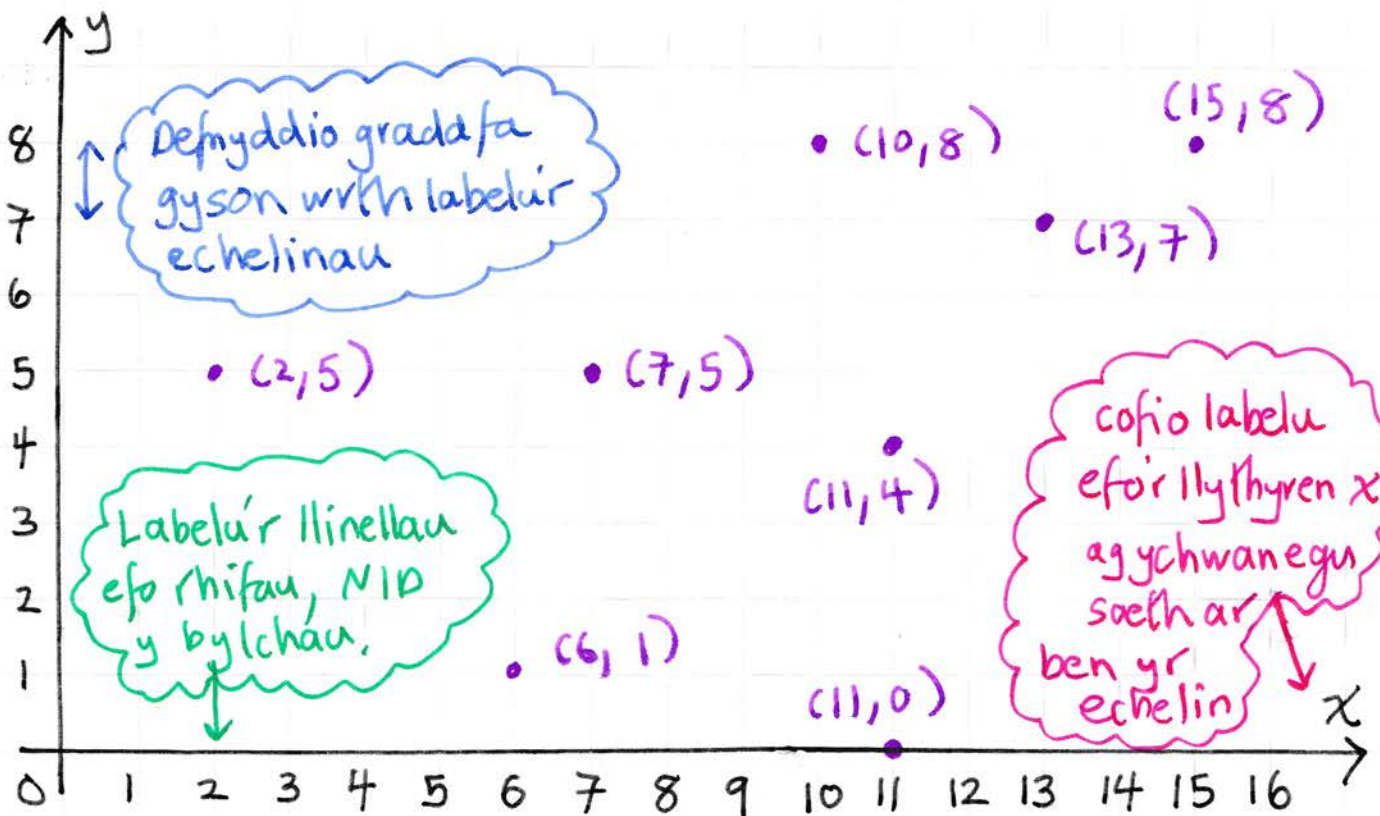 y
Defnyddio graddfa
gyson wrth labelu'r
echelinau
(15,8)
(10,8)
(13,7)
(2,5)
(7,5)
(11,4)
(6,1)
(11,0)
Labelu'r llinellau
efo rhifau, NID
y bylchau.
cofio labelu
efo'r llythyren x
ag ychwanegu
saeth ar
ben yr
echelin
x
8
7
6
5
4
3
2
1
0 1 2 3 4 5 6 7 8 9 10 11 12 13 14 15 16